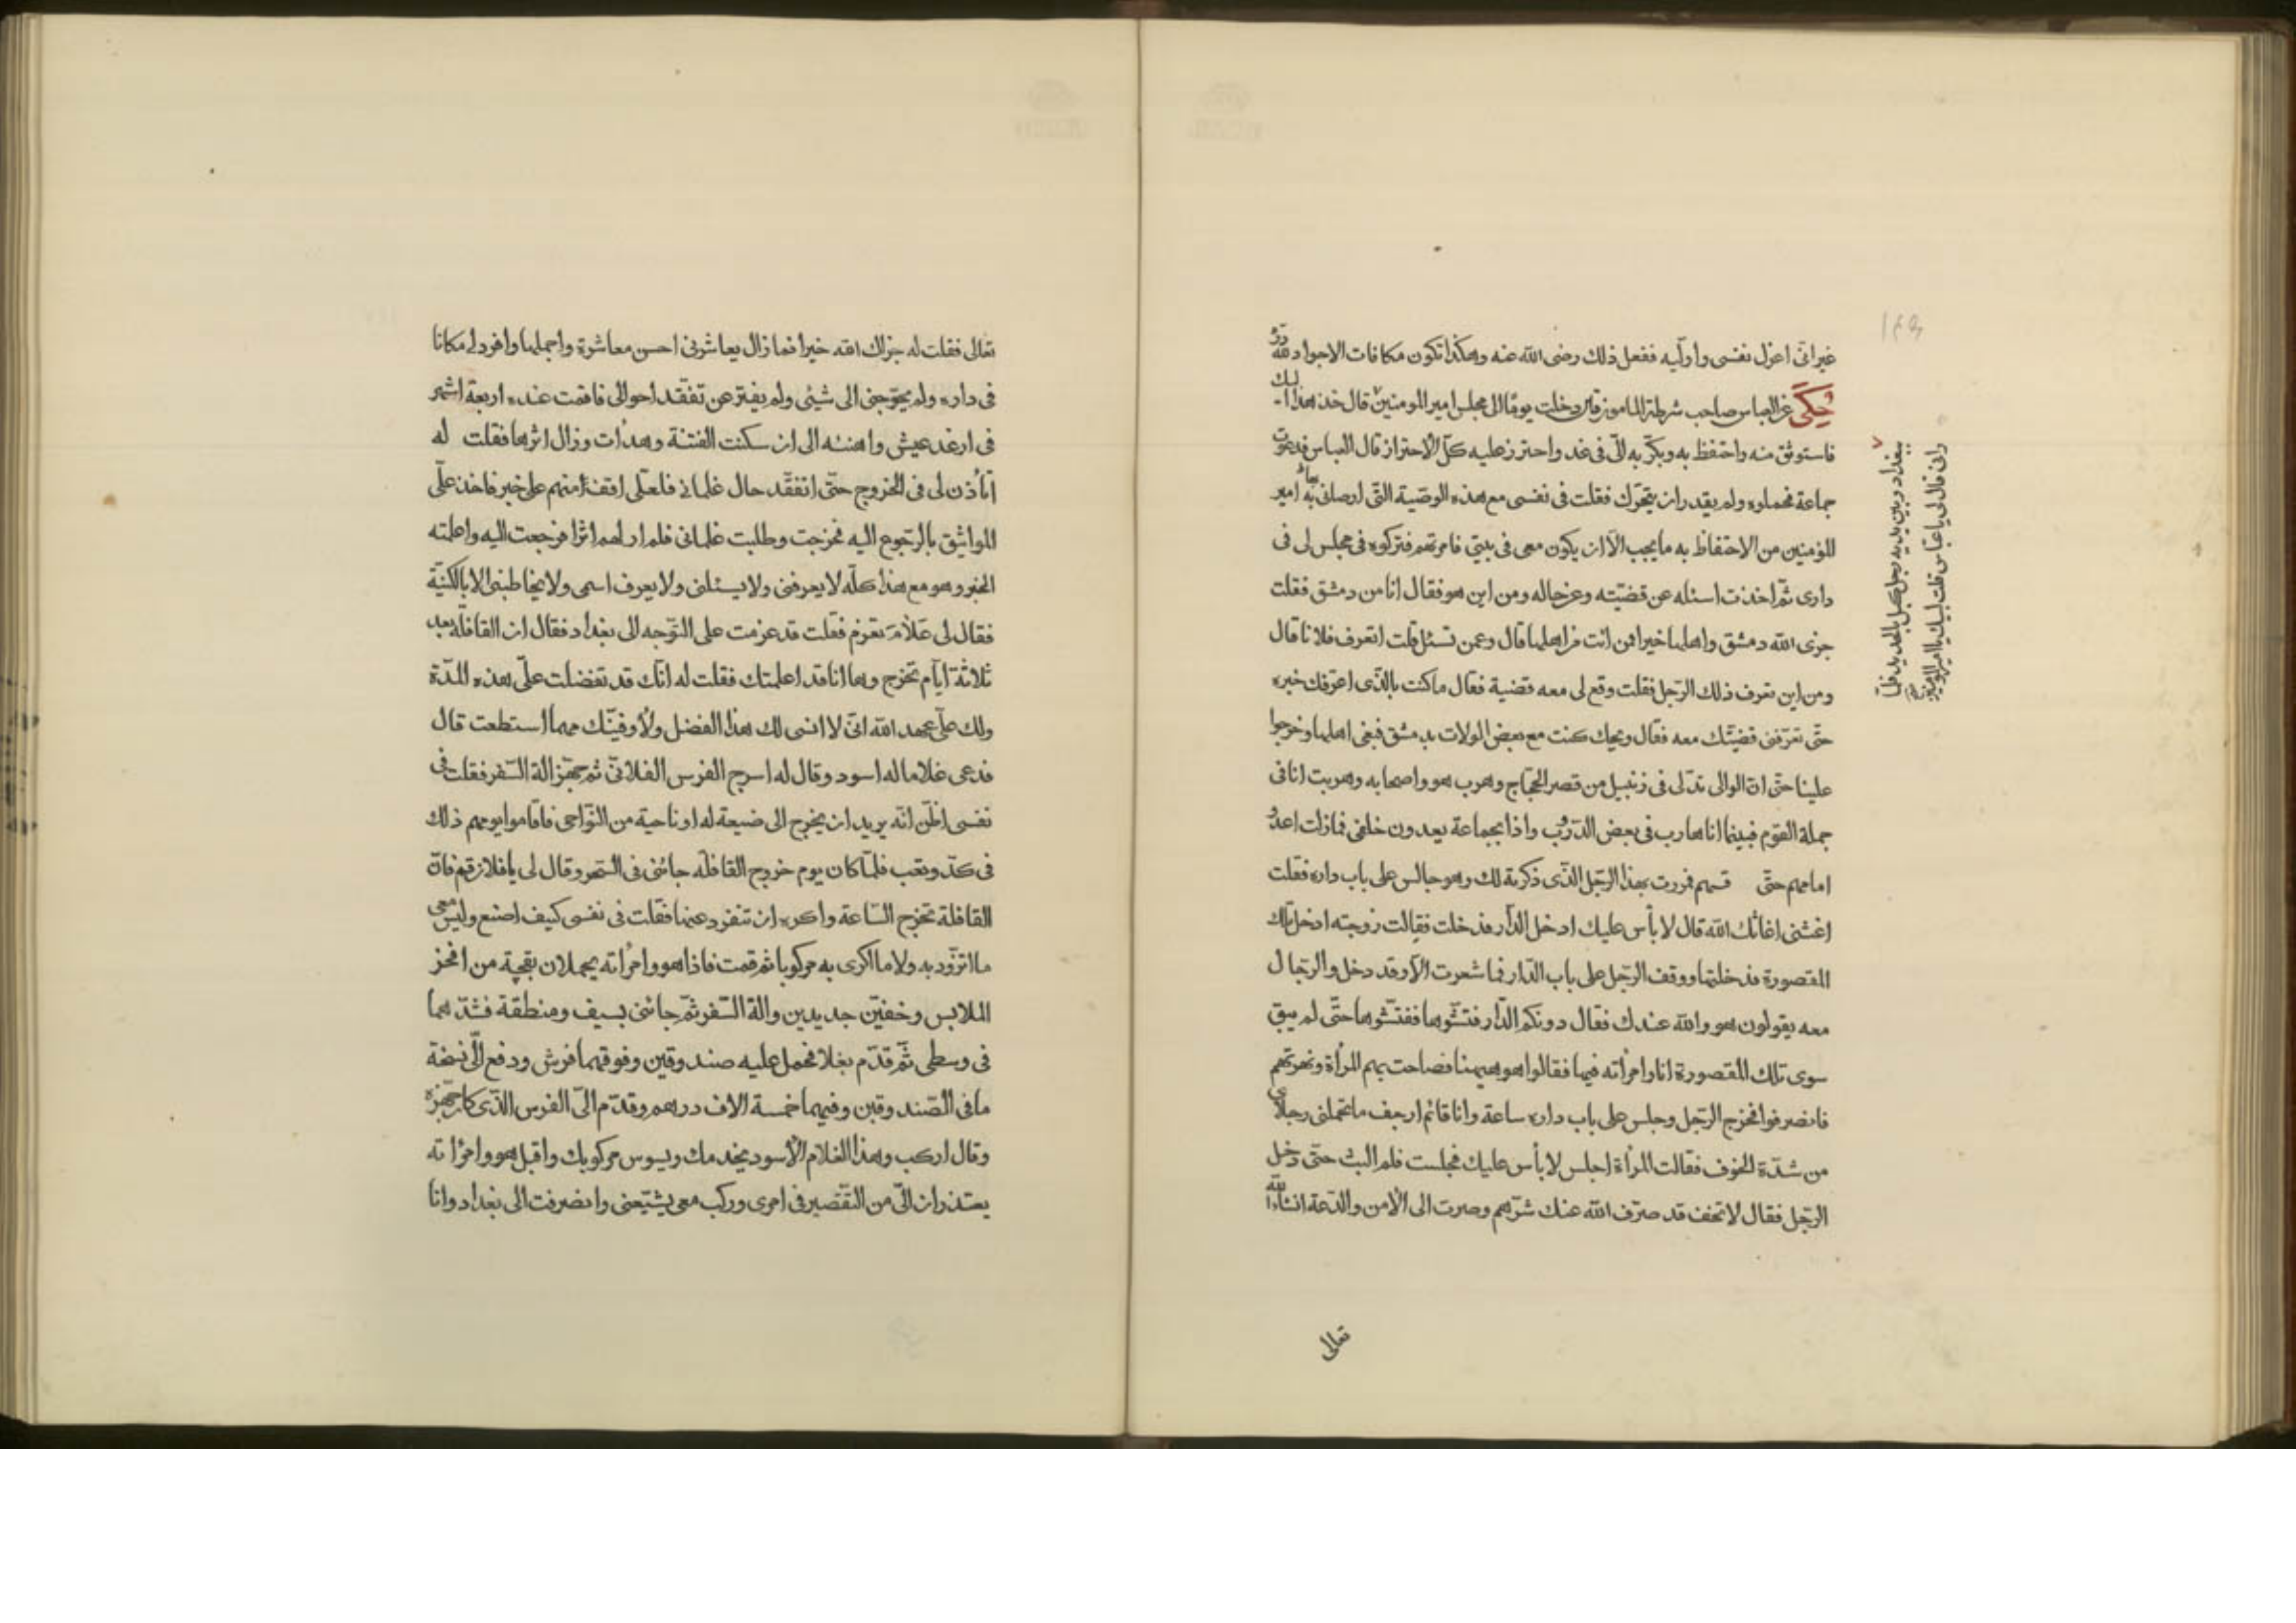 ١٤٩
غير انّى اعزل نفسى واولّيه ففعل ذلك رضى الله عنه وهكذا تكون مكافات الاجواد
حُكىَ عن العباس صاحب شرطة المامون قال دخلت يومًا الى مجلس امير المومنين قال خذ هذا اليك
فاستوثق منه واحتفظ به وبكّر به الىّ فى غد واحترز عليه كلّ الاحتراز قال العباس فدعوت
جماعة فحملوه ولم يقدر ان يتحرّك فقلت فى نفسى مع هذه الوصّية التّى اوصانى بها امير
المؤمنين من الاحتفاظ به ما يجب الّا ان يكون معى فى بيتى فامرتهم فتركوه فى مجلس لى فى
دارى ثمّ اخذت اسئله عن قضيّته وعن حاله ومن اين هو فقال انا من دمشق فقلت
جزى الله دمشق واهلها خيرا فمن انت من اهلها قال وعمن تسئل قلت اتعرف فلانا قال
ومن اين تعرف ذلك الرّجل فقلت وقع لى معه قضية فقال ما كنت بالذّى اعرّفك خبره
حتّى تعرّفنى قضيّتك معه فقال ويحك كنت مع بعض الولات بدمشق فبغى اهلها وخرجوا
علينا حتّى انّ الوالى تدلّى فى زنبيل من قصر الحجّاج وهرب هو واصحابه وهربت انا فى
جملة القوم فبينما انا هارب فى بعض الدّروب واذا بجماعة يعدون خلفى فما زلت اعدو
امامهم حتّى فتهم فمررت بهذا الرّجل الذّى ذكرته لك وهو جالس على باب داره فقلت
اغثنى اغاثك الله قال لا بأس عليك ادخل الدّار فدخلت فقالت زوجته ادخل تلك
المقصورة فدخلتها ووقف الرّجل على باب الدّار فما شعرت الّا وقد دخل والرّجال
معه يقولون هو والله عندك فقال دونكم الدّار فتشّوها ففتّشوها حتّى لم يبق
سوى تلك المقصورة انا وامرأته فيها فقالوا هو هيهنا فصاحت بهم المرأة ونهرتهم
فانصرفوا فخرج الرّجل وجلس على باب داره ساعة وانا قائم ارجف ما تحملنى رجلاى
من شدّة الخوف فقالت المرأة اجلس لا بأس عليك فجلست فلم البث حتّى دخل
الرّجل فقال لا تخف قد صرّف الله عنك شرّهم وصرت الى الأمن والدّعة انشاء الله
ببغداد وبين يديه رجل مكبل بالحديد فلمّا
رانى قال لى يا عبّاس قلت لبيك يا امير المومنين
تعالى
تعالى فقلت له جزاك الله خيرا فما زال يعاشرنى احسن معاشرة واجملها وافرد لى مكانا
فى داره ولم يحوّجنى الى شيئى ولم يفتر عن تفقّد احوالى فاقمت عنده اربعة اشهر
فى ارغد عيش واهنئه الى ان سكنت الفتنة وهدأت وزال اثرها فقلت له
اتأذن لى فى الخروج حتّى اتفقّد حال غلمانى فلعلّى اقف منهم على خبر فاخذ علىّ
المواثيق بالرّجوع اليه فخرجت وطلبت غلمانى فلم ار لهم اثرا فرجعت اليه واعلمته
الخبر وهو مع هذا كلّه لا يعرفنى ولا يسئلنى ولا يعرف اسمى ولا يخاطبنى الا بالكنيّة
فقال لى عَلامَ تعزم فقلت قد عزمت على التّوجه الى بغداد فقال ان القافلة بعد
ثلاثة ايّام تخرج وها انا قد اعلمتك فقلت له انّك قد تفضلت علىّ هذه المدّة
ولك علىّ عهد الله انّى لا انسى لك هذا الفضل ولأوفينّك مهما استطعت قال
فدعى غلاما له اسود وقال له اسرج الفرس الفلانىّ ثم جهّز الة السّفر فقلت فى
نفسى اظنّ انّه يريد ان يخرج الى ضيعة له او ناحية من النّواحى فاقاموا يومهم ذلك
فى كدّ وتعب فلمّا كان يوم خروج القافلة جائنى فى السّحر وقال لى يا فلان قم فانّ
القافلة تخرج السّاعة واكره ان تنفرد عنها فقلت فى نفسى كيف اصنع وليس معى
ما اتزوّد به ولا ما اكرى به مركوبا ثم قمت فاذا هو وامرأته يحملان بقجة من افخر
الملابس وخفيّن جديدين والة السّفر ثمّ جائنى بسيف ومنطقة فشدّهما
فى وسطى ثمّ قدّم بغلا فحمل عليه صندوقين وفوقهما فرش ودفع الىّ نسخة
ما فى الصّندوقين وفيهما خمسة الاف درهم وقدّم الىّ الفرس الذّى كان جهّزه
وقال اركب وهذا الغلام الأسود يخدمك ويسوس مركوبك واقبل هو وامرأته
يعتذران الىّ من التّقصير فى امرى وركب معى يشيّعنى وانصرفت الى بغداد وانا